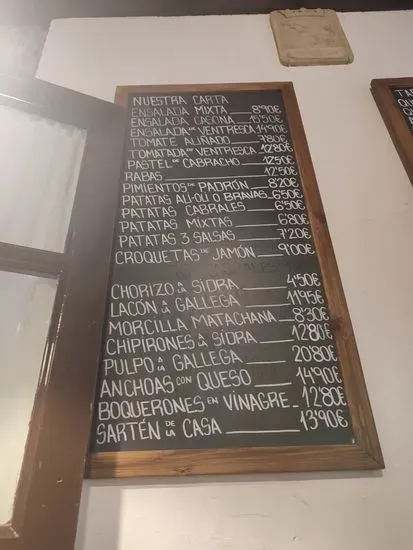 NUESTRA CARTA
ENSALADA MIXTA 8'90€
ENSALADA CASONA 15'50€
ENSALADA DE VENTRESCA 14'90€
TOMATE ALIÑADO 7'80€
TOMATADA DE VENTRESCA 12'80€
PASTEL DE CABRACHO 12'50€
RABAS 12'50€
PIMIENTOS DE PADRÓN 8'20€
PATATAS ALI-OLI O BRAVAS 6'50€
PATATAS CABRALES 6'50€
PATATAS MIXTAS 6'80€
PATATAS 3 SALSAS 7'20€
CROQUETAS DE JAMÓN 9'00€
CHORIZO A LA SIDRA 4'50€
LACÓN A LA GALLEGA 11'95€
MORCILLA MATACHANA 8'30€
CHIPIRONES A LA SIDRA 12'80€
PULPO A LA GALLEGA 20'80€
ANCHOAS CON QUESO 14'90€
BOQUERONES EN VINAGRE 12'80€
SARTÉN DE LA CASA 13'90€